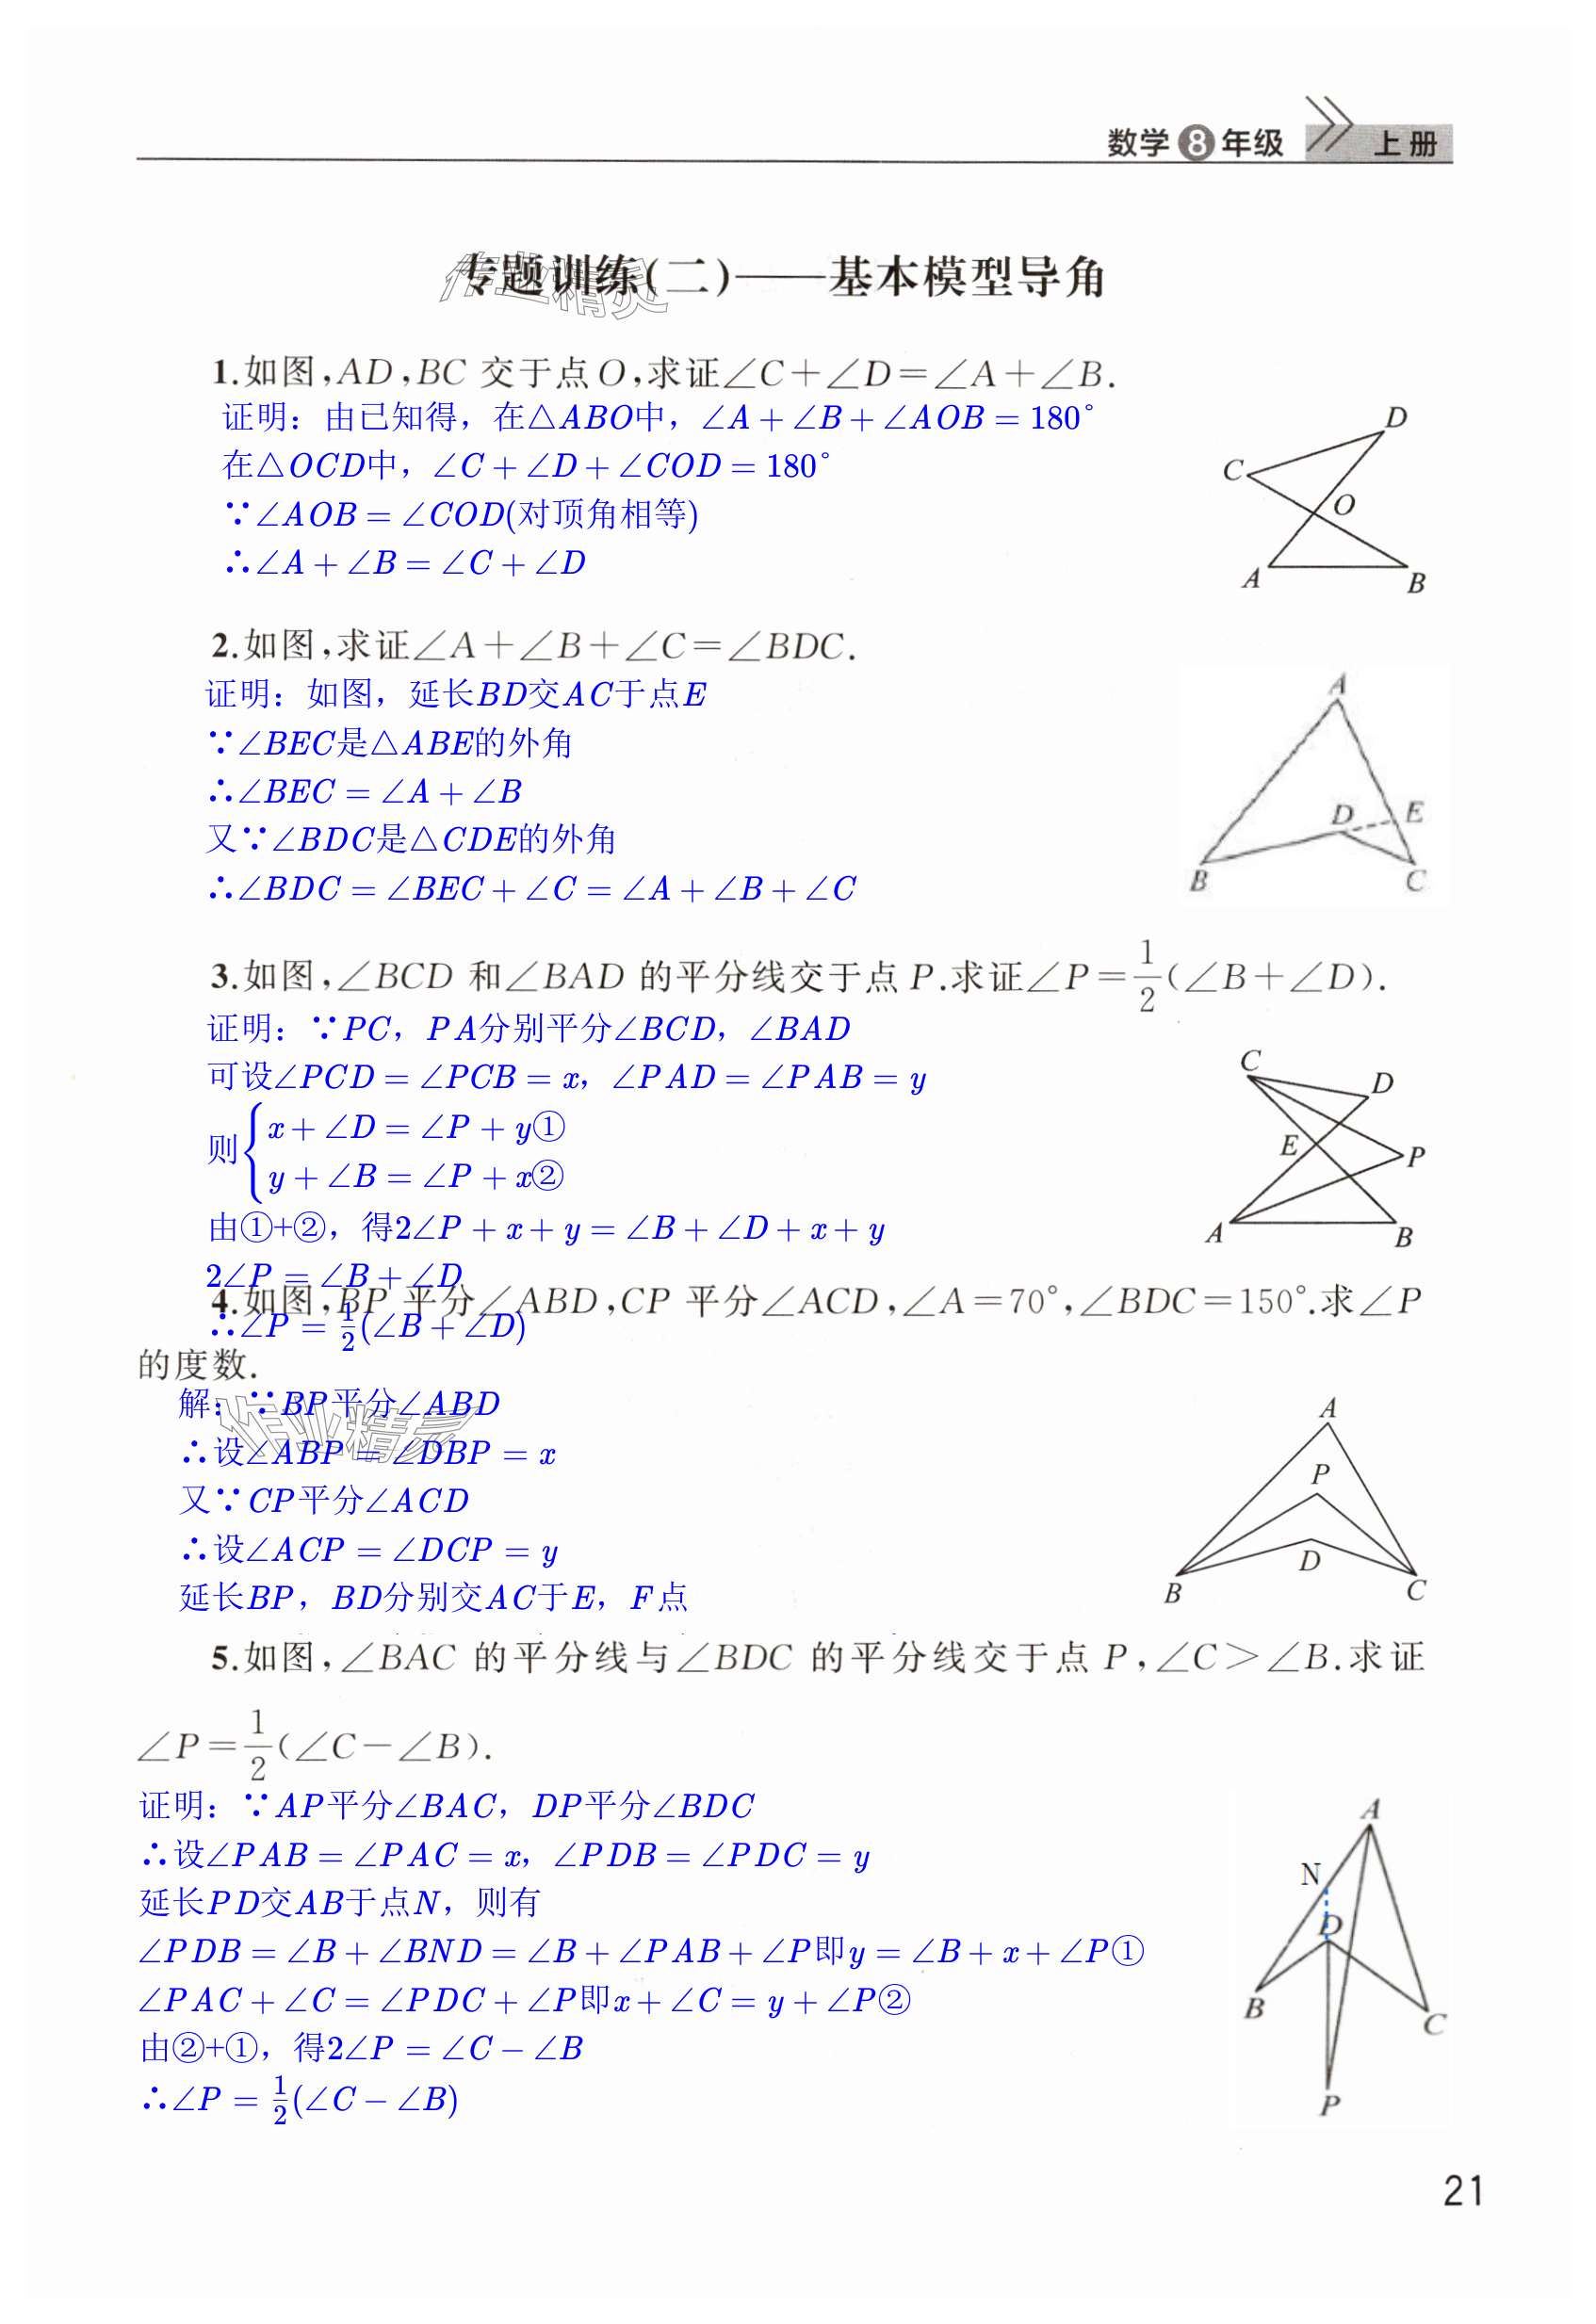 数学8年级 上册
专题训练(二)——基本模型导角
作业精灵
1.如图,AD,BC 交于点O,求证∠C+∠D=∠A+∠B.
证明：由已知得，在△ABO中，∠A+∠B+∠AOB=180°
在△OCD中，∠C+∠D+∠COD=180°
∵∠AOB=∠COD(对顶角相等)
∴∠A+∠B=∠C+∠D
D
C
O
A
B
2.如图,求证∠A+∠B+∠C=∠BDC.
证明：如图，延长BD交AC于点E
∵∠BEC是△ABE的外角
∴∠BEC=∠A+∠B
又∵∠BDC是△CDE的外角
∴∠BDC=∠BEC+∠C=∠A+∠B+∠C
A
D E
B
C
3.如图,∠BCD 和∠BAD 的平分线交于点 P.求证∠P=1/2(∠B+∠D).
证明：∵PC，PA分别平分∠BCD，∠BAD
可设∠PCD=∠PCB=x，∠PAD=∠PAB=y
则{x+∠D=∠P+y①
y+∠B=∠P+x②
由①+②，得2∠P+x+y=∠B+∠D+x+y
2∠P=∠B+∠D
∴∠P=1/2(∠B+∠D)
C
D
E
P
A
B
4.如图,BP 平分∠ABD,CP 平分∠ACD,∠A=70°,∠BDC=150°.求∠P
的度数.
解：∵BP平分∠ABD
作业精灵
∴设∠ABP=∠DBP=x
又∵CP平分∠ACD
∴设∠ACP=∠DCP=y
延长BP，BD分别交AC于E，F点
A
P
D
B
C
5.如图,∠BAC 的平分线与∠BDC 的平分线交于点 P,∠C>∠B.求证
∠P=1/2(∠C-∠B).
证明：∵AP平分∠BAC，DP平分∠BDC
∴设∠PAB=∠PAC=x，∠PDB=∠PDC=y
延长PD交AB于点N，则有
∠PDB=∠B+∠BND=∠B+∠PAB+∠P即y=∠B+x+∠P①
∠PAC+∠C=∠PDC+∠P即x+∠C=y+∠P②
由②+①，得2∠P=∠C-∠B
∴∠P=1/2(∠C-∠B)
A
N
D
B
C
P
21